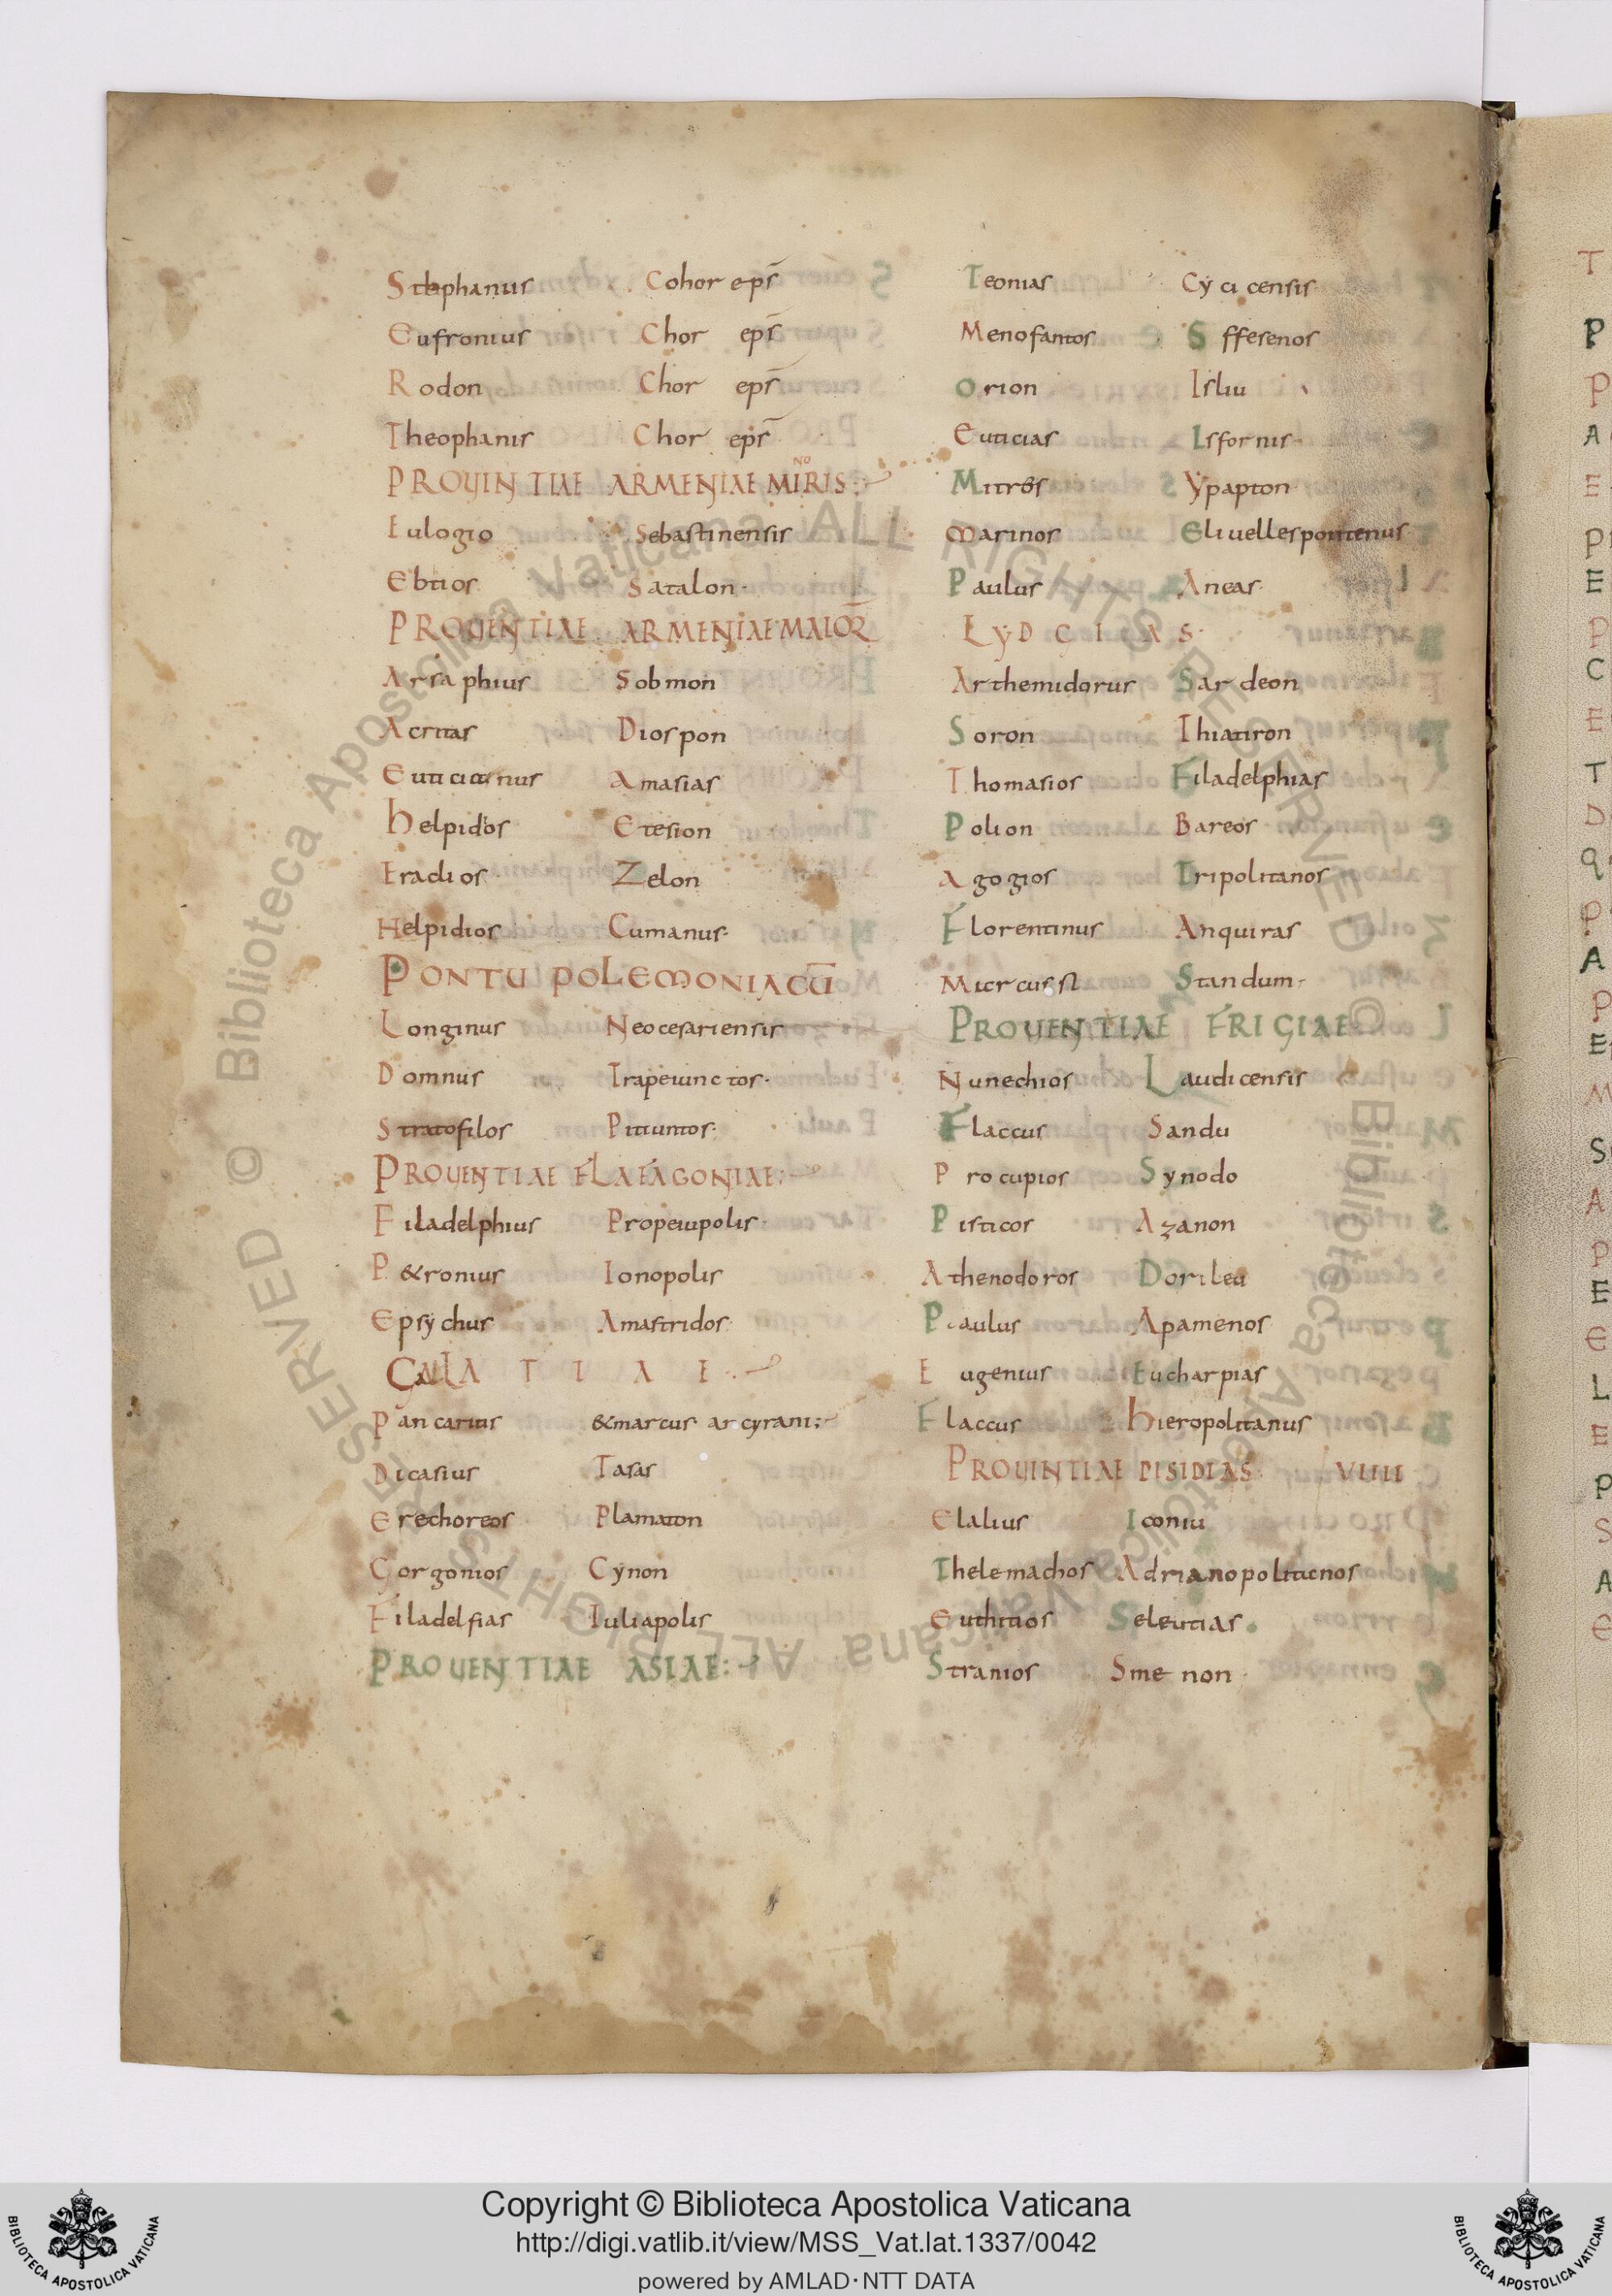 Stephanus Cohor ep̄s
Eufronius Chor ep̄s
Rodon Chor ep̄s
Theophanis Chor ep̄s
PROUINTIAE ARMENIAE MINORIS
Eulogio Sebastinensis
Ebtios Satalon
PROUENTIAE ARMENIAE MAIOR
Arsaphius Sobmon
Acritas Diospon
Euticianus Amasias
helpidos Etesion
Eradios Zelon
Helpidios Cumanus
PONTU POLEMONIACŪ
Longinus Neocesariensis
Domnus Trapeiunctos
Stratofilos Pitiuntos
PROUENTIAE FLAFAGONIAE
Filadelphius Propeiupolis
P&ronius Ionopolis
Epsychus Amastridos
GALATIAE
Pancarius &marcus arcyrani
Dicasius Tasas
Erechoreos Plamaton
Gorgonios Cynon
Filadelfias Iuliapolis
PROUENTIAE ASIAE
Teonias Cycicensis
Menofantos Sffesenos
Orion Isliu
Euticias Isfornis
Mitres Ypapton
Marinos Eliuellespontenus
Paulus Aneas
LYDCIAS
Arthemidorus Sardeon
Soron Thiatiron
Thomasios Filadelphias
Polion Bareos
Agogios Tripolitanos
Florentinus Anquiras
Standum
PROUENTIAE FRIGIAE
Nunechios Laudicensis
Flaccus Sandu
Procupios Synodo
Pisticos Azanon
Athenodoros Dorileu
Paulus Apamenos
Eugenius Eucharpias
Flaccus hieropolitanus
PROUINTIAE PISIDIAS VIIII
Elalius Iconiu
Thelemachos Adrianopolitienos
Euthitios Seleutias
Stranios Smenon
Copyright © Biblioteca Apostolica Vaticana
http://digi.vatlib.it/view/MSS_Vat.lat.1337/0042
powered by AMLAD·NTT DATA
BIBLIOTECA APOSTOLICA VATICANA
BIBLIOTECA APOSTOLICA VATICANA